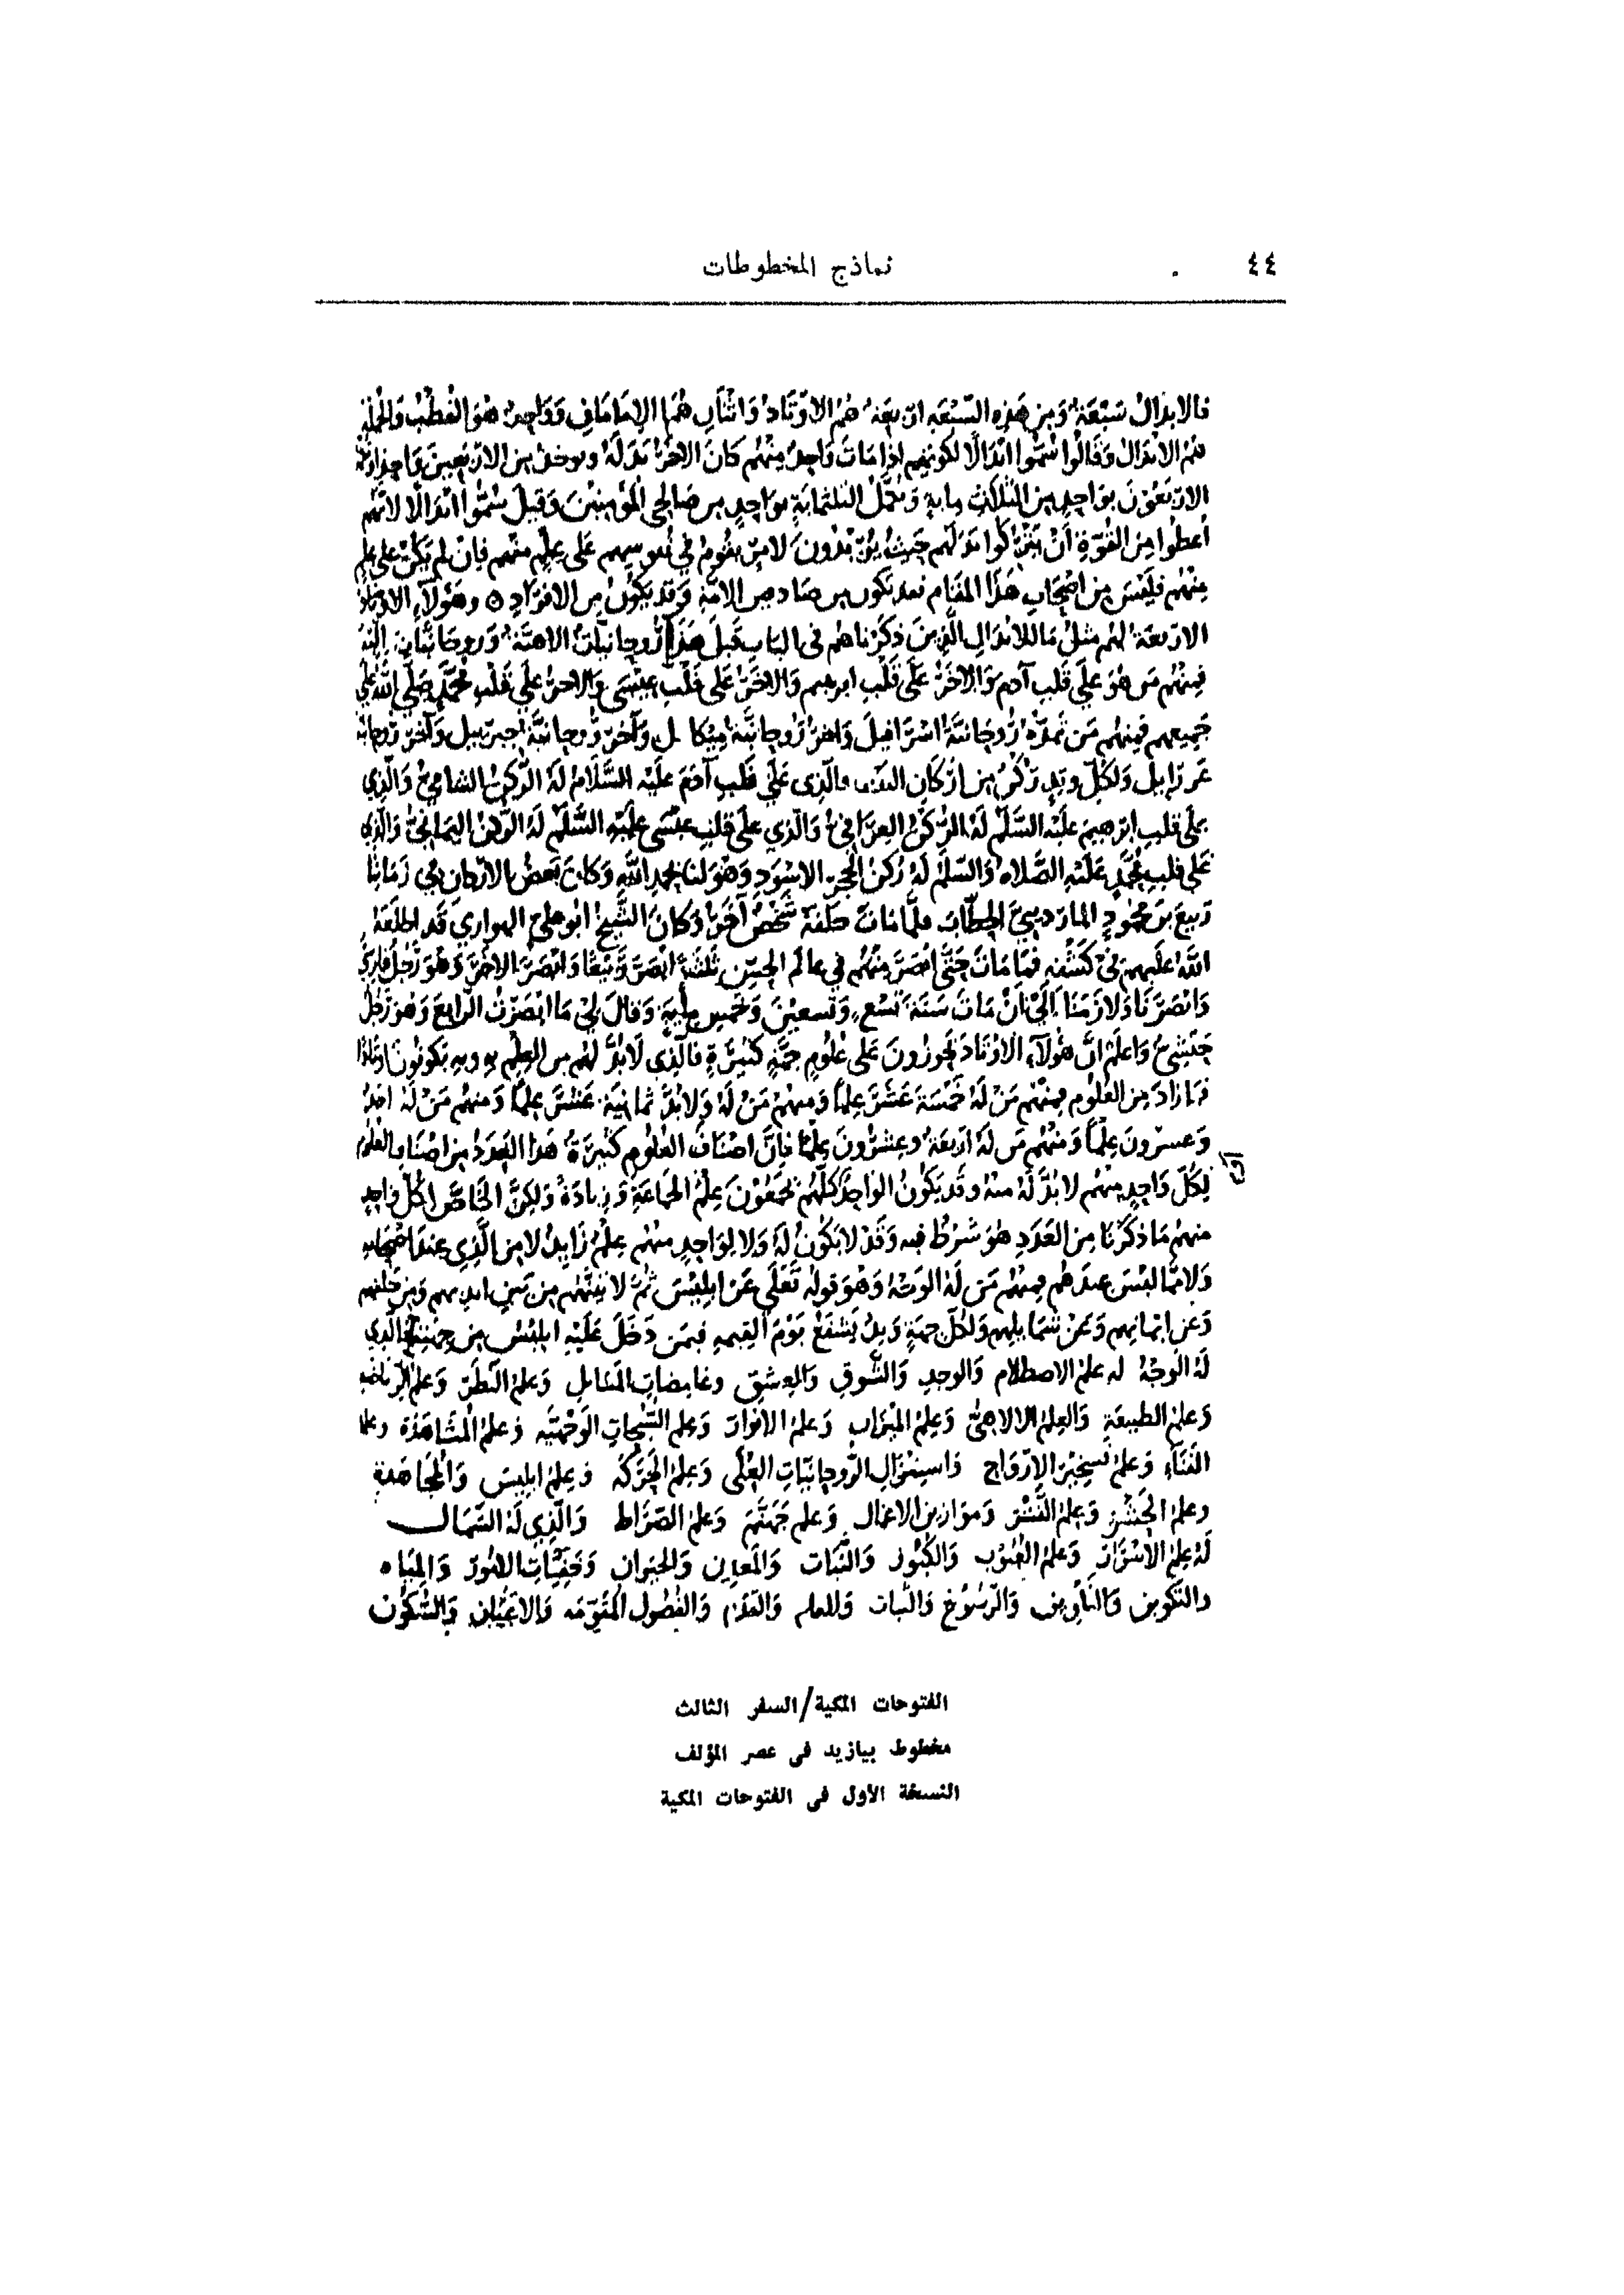 ٤٤
نماذج المخطوطات
فالابدال سَبْعَة وَمِن هَذِهِ السَّبْعَهِ اربعَة هُمُ الاوْتَادُ وَاثْنَانِ هُمَا الاِمَامَانِ وَوَاحِدٌ هُوَ القُطْبُ وَالجُمْلَة
هُمُ الابْدَالُ وَقَالُوا سُمُّوا ابْدَالًا لكونِهِم اذا مَاتَ وَاحِدٌ مِنْهُم كَانَ الاخَرُ بَدَلَهُ ويوخذ مِن الارْبَعِينَ وَاحِد
الارْبَعُونَ بوَاحِدٍ مِن الثلَاث مايهِ وَتُكمَّلُ الثلثمايَةِ بوَاحِدٍ من صَالِحِي المُؤمِنِينَ وَقِيلَ سُمُّوا ابْدَالًا لانَّهُم
أعطُوا مِن القُوَّةِ أنْ يَتْرُكُوا بَدَلَهُم حَيثُ يُرِيدُونَ لامْرٍ يقُومُ فِي نُفُوسِهِم عَلَى عِلْمٍ مِنْهُم فَانْ لم يَكُنْ عَلَى عِلْمٍ
مِنْهُم فَلَيْسَ مِن اصْحَابِ هَذا المَقَامِ فقد يَكُون من صُلَحاء الامَّةِ وَقَد يَكُونُ من الافرَادِ ٥ وهَؤلَاءِ الاوْتَادُ
الاربَعَة لهُم مثلُ مَا للابْدَالِ الَّذِينَ ذكَرْنَاهُم فى البَابِ قَبلَ هَذَا رُوحَانِيَّةٌ الاهيَّة وَروحَانِيَّة اليَّة
فمِنْهُم من هُوَ عَلَى قَلبِ آدم وَالاخَرُ عَلَى قَلْبِ ابرهِيم وَالاخَرُ عَلَى قَلْبِ عِيْسَى وَالاخرُ عَلَى قَلْبِ مُحَمَّدٍ صَلَّى اللَّهُ عَلَى
جَمِيعهِم فَمِنْهُم مَن تمدّهُ رُوحَانيَّة اسْرَافِيلَ وَاخرُ رُوحَانيَّة مِيْكَايل وَآخَرُ رُوحَانِيَّة جبرَييل وَآخَرُ رُوحَانِيَّة
عَزرَايِيلَ وَلكُلِّ وتِدٍ رُكْنٌ مِن ارْكَانِ البَيْت فَالّذِى عَلَى قَلبِ آدَمَ عَلَيْهِ السَّلَامُ لَهُ الرُّكْنُ الشامِيُّ وَالَّذِي
عَلَى قلبِ ابْرَهِيمَ عَلَيْهِ السَّلَمُ لَهُ الرُّكْنُ العِرَاقِيُّ وَالَّذِي عَلَى قَلبِ عيْسَى عَلَيْهِ السَّلَمُ لَهُ الرُّكنُ اليَمَانِيُّ وَالَّذِي
عَلَى قَلبِ مُحَمَّدٍ عَلَيْهِ الصَّلَاهُ وَالسَّلَمُ لَهُ رُكنُ الحَجَرِ الاسْوَدِ وَهُوَ لَنَا بحَمدِ اللَّهِ وَكَانَ بَعْضُ الارْكَانِ فِي زَمَانِنَا
رَبيعَ بنَ مَحْمُودٍ المَارديني الحَطَّاب فلَمَّا مَاتَ خَلَفَهُ شَخْصٌ آخَرُ وَكَانَ الشَّيْخُ ابُو عَلِيّ الهوارِي قَد اطْلَعَهُ
اللَّهُ عَلَيهِم فِي كَشْفِهِ فَمَا مَاتَ حَتَّى ابْصَرَ مِنْهُم فِي عَالَم الحِسِّ ثَلثَة ابْصَرَ رَبيعًا وَابْصَرَ الاخَرَ وَهُوَ رَجُلٌ فَارِسِيٌّ
وَابْصَرَنَا وَلازَمَنَا اِلَى أنْ مَاتَ سَنَةَ تِسْعٍ وَتسعيْنَ وَخَمسِ مِايَةٍ وَقَالَ لِي مَا ابْصَرْتُ الرَّابِعَ وَهُوَ رَجُلٌ
حَبَشِيٌّ وَاعلَم انَّ هَؤلَاءِ الاوْتَادَ يَحُوزُونَ عَلَى عُلُومٍ جَمَّةٍ كَثِيرَةٍ فَالَّذِي لَابُدَّ لَهُم من العِلْمِ بِهِ وبِهِ يَكونُونَ اوتَادًا
فمَا زادَ مِن العُلُومِ فمِنْهُم مَن لَهُ خَمْسَة عَشَرَ عِلمًا وَمِنهُم مَنْ لَهُ وَلَابُدَّ ثمانِيَةَ عَشَرَ عِلمًا وَمنهُم مَنْ لَهُ احَدٌ
وَعِشرونَ عِلْمًا وَمِنْهُم مَن لَهُ اربَعَة وعِشرُونَ عِلْمًا فَاِنَّ اصْنَافَ العُلُومِ كَثِيرَةٌ هَذا العَدَدُ مِن اصْنَافِ العُلُوم
لِكُلِّ وَاحِدٍ مِنْهُم لابُدَّ لَهُ مِنْهُ وقَد يَكُونُ الوَاحِدُ كلّهُم يَجْمَعُ عِلْمَ الجَمَاعَةِ وَزِيَادَةً وَلكِنَّ الخَاصَّ لِكُلِّ وَاحِدٍ
مِنهُم مَا ذكَرْنَا مِن العَدَدِ هُوَ شَرْطٌ فيه وَقَدْ لَا يَكُونُ لَهُ وَلا لِوَاحِدٍ مِنْهُم عِلْمٌ زَايِدٌ لا مِن الَّذِي عِندَ اصْحَابِهِ
وَلا مِمَّا ليْسَ عِنْدَهُم فمِنْهُم مَن لَهُ الوَجْهُ وَهُوَ قولُهُ تَعَلَى عَنْ اِبلِيسَ ثُمَّ لآتِيَنَّهُم مِن بَيْنِ ايديهم وَمِن خَلفِهِم
وَعَن ايمَانِهِم وَعَنْ شَمَايِلِهِم وَلِكُلِّ جِهَةٍ وَتِدٌ يَشْفَعُ يَوْمَ القِيَمَةِ فِيمَن دَخَلَ عَلَيْهِ ابلِيْسُ مِن جِهَتِهِ فَالَّذِي
لَهُ الوَجْهُ له عِلمُ الاصطلام وَالوجدِ وَالشَّوقِ وَالعِشقِ وغَامِضَاتِ المَسَائِلِ وَعِلمُ النَّظَرِ وَعِلْمُ الرّيَاضَه
وَعِلْمُ الطبيعَةِ وَالعِلمُ الالاهِيُّ وَعِلمُ المِيْزَانِ وَعلمُ الانْوَارِ وَعِلم السُّبُحَاتِ الوَجْهِيَّه وَعِلمُ المُشَاهَدَة وعلم
الفَنَاءِ وَعِلمُ تسخِيْرِ الارْوَاحِ وَاستِنْزَالِ الرُّوحَانِيَّاتِ العُلَى وَعِلمُ الحَرَكَه وَعِلمُ ابلِيسَ وَالمُجَاهَدَة
وعلمُ الحَشْرِ وَعِلمُ النَّشْرِ وَموَازِينِ الاعمَالِ وَعِلم جَهَنَّمَ وَعلمُ الصّرَاطِ وَالَّذِي لَهُ الشّمَال
لَهُ عِلمُ الاسْرَارِ وَعِلمُ الغُيُوبِ وَالكُنُوز وَالنَّبَات وَالمَعدِنِ وَالحَيَوَانِ وَخَفِيَّاتِ الامُورِ وَالمِيَاه
وَالتَّكْوِينِ وَالتَّلوِينِ وَالرُّسُوخِ وَالثَّبات وَالمقام وَالقَدَم وَالفُصُول المُقَوِّمَه وَالاعْيَانِ وَالسُّكُونِ
الفتوحات المكية/السفر الثالث
مخطوط بيازيد فى عصر المؤلف
النسخة الأول فى الفتوحات المكية